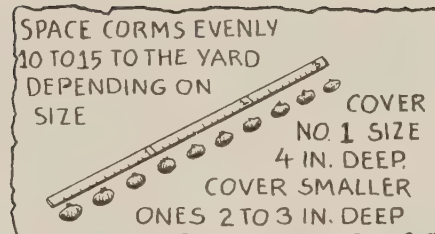 SPACE CORMS EVENLY
10 TO 15 TO THE YARD
DEPENDING ON
SIZE
COVER
NO. 1 SIZE
4 IN. DEEP.
COVER SMALLER
ONES 2 TO 3 IN. DEEP